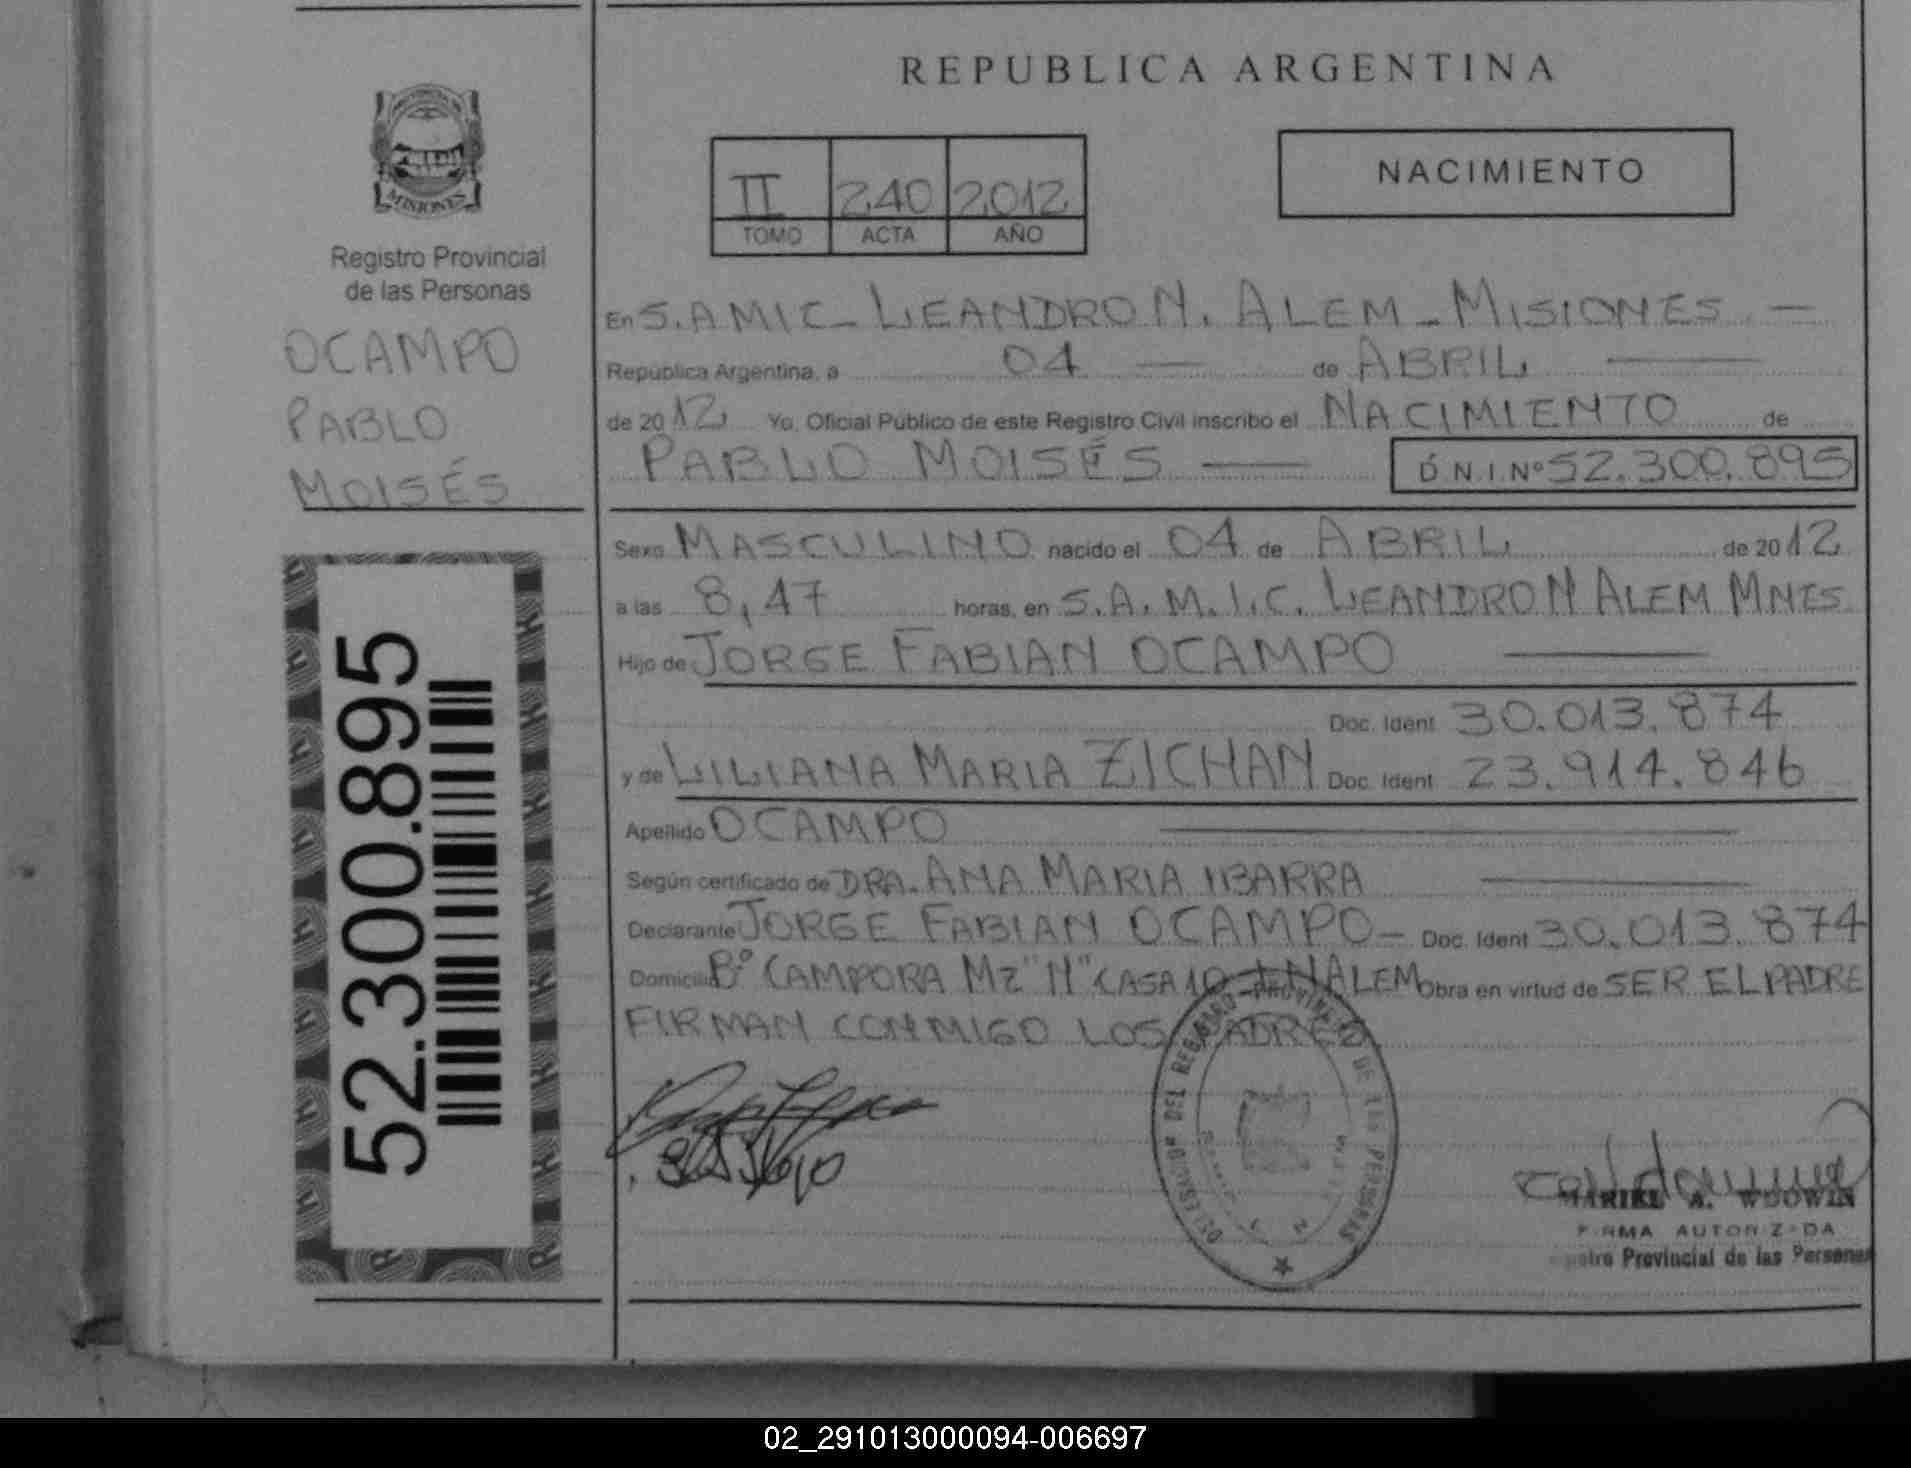 REPUBLICA ARGENTINA
NACIMIENTO
II 240 2012
TOMO ACTA AÑO
MISIONES
Registro Provincial
de las Personas
OCAMPO
PABLO
MOISÉS
52.300.895
En S.AMIC - LEANDRO N. ALEM - MISIONES -
República Argentina, a 04 de ABRIL
de 2012 Yo, Oficial Público de este Registro Civil inscribo el NACIMIENTO de
PABLO MOISÉS D.N.I. Nº 52.300.895
Sexo MASCULINO nacido el 04 de ABRIL de 2012
a las 8,47 horas, en S.A.M.I.C. LEANDRO N ALEM MNES
Hijo de JORGE FABIAN OCAMPO
Doc. Ident 30.013.874
y de LILIANA MARIA ZICHAN Doc. Ident 23.914.846
Apellido OCAMPO
Según certificado de DRA. ANA MARIA IBARRA
Declarante JORGE FABIAN OCAMPO - Doc. Ident 30.013.874
Domicilio Bº CAMPORA Mz "N" CASA 10 LNALEM Obra en virtud de SER EL PADRE
FIRMAN CONMIGO LOS PADRES
DELEGACION DEL REGISTRO PROVINCIAL DE LAS PERSONAS
MARIEL A. WDOWIN
FIRMA AUTORIZADA
Registro Provincial de las Personas
02_291013000094-006697